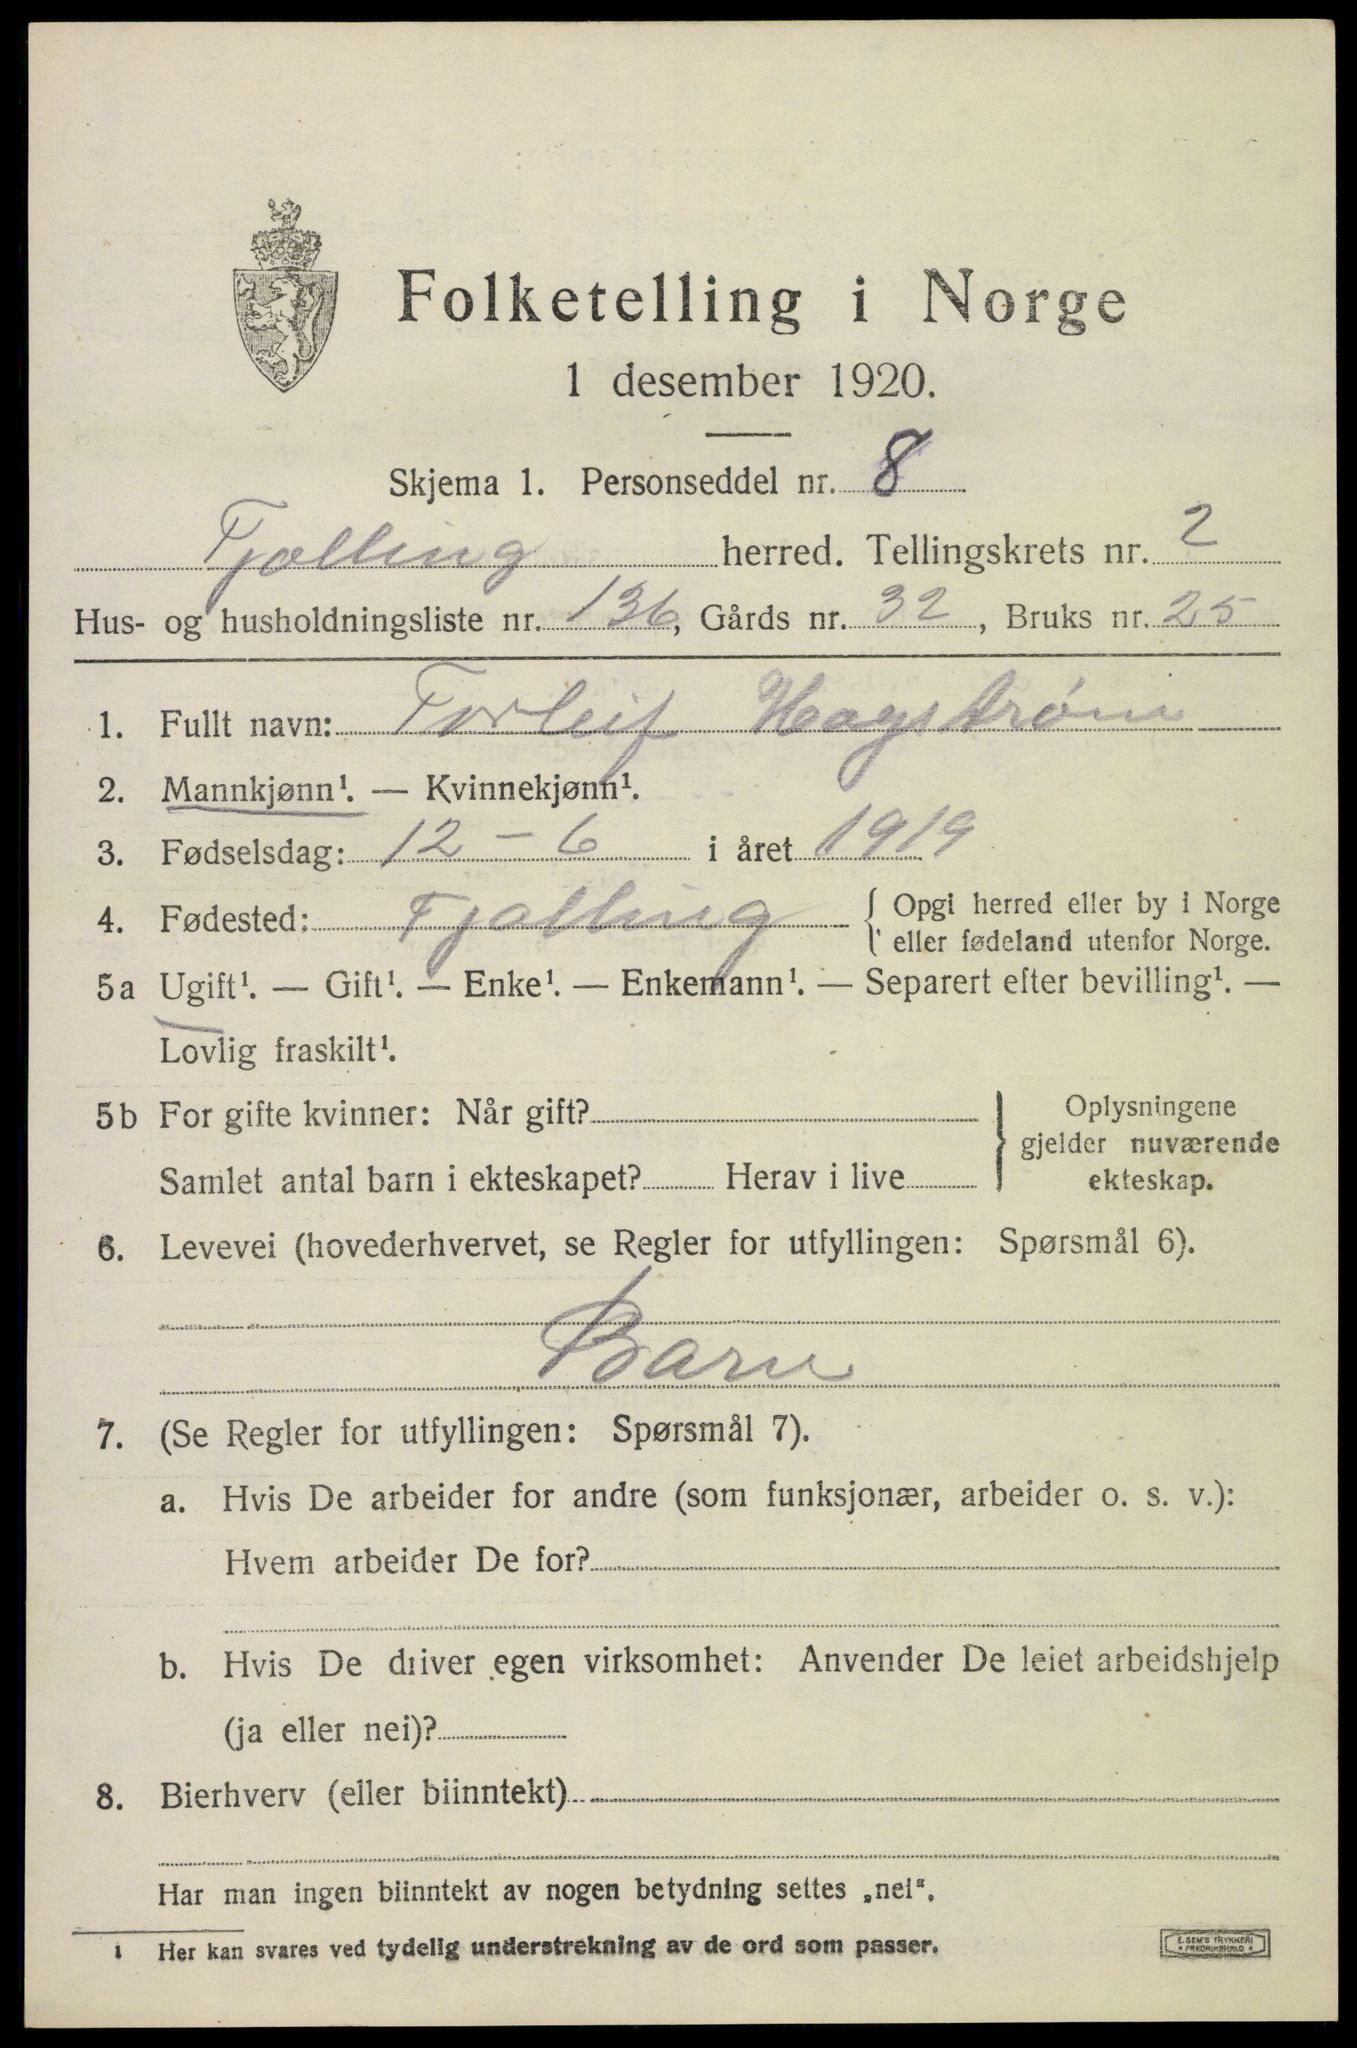 Folketelling i Norge
1 desember 1920.
Skjema 1. Personseddel nr. 8
Tjølling herred. Tellingskrets nr. 2
Hus- og husholdningsliste nr. 136, Gårds nr. 32, Bruks nr. 25
1. Fullt navn: Torleif Hagstrøm
2. Mannkjønn¹. — Kvinnekjønn¹.
3. Fødselsdag: 12 - 6 i året 1919
4. Fødested: Tjølling { Opgi herred eller by i Norge
eller fødeland utenfor Norge.
5a Ugift¹. — Gift¹. — Enke¹. — Enkemann¹. — Separert efter bevilling¹. —
Lovlig fraskilt¹.
5b For gifte kvinner: Når gift?
Samlet antal barn i ekteskapet? Herav i live
} Oplysningene
gjelder nuværende
ekteskap.
6. Levevei (hovederhvervet, se Regler for utfyllingen: Spørsmål 6).
Barn
7. (Se Regler for utfyllingen: Spørsmål 7).
a. Hvis De arbeider for andre (som funksjonær, arbeider o. s. v.):
Hvem arbeider De for?
b. Hvis De driver egen virksomhet: Anvender De leiet arbeidshjelp
(ja eller nei)?
8. Bierhverv (eller biinntekt)
Har man ingen biinntekt av nogen betydning settes „nei“.
1 Her kan svares ved tydelig understrekning av de ord som passer.
E. SEM'S TRYKKERI
* FREDRIKSHALD *